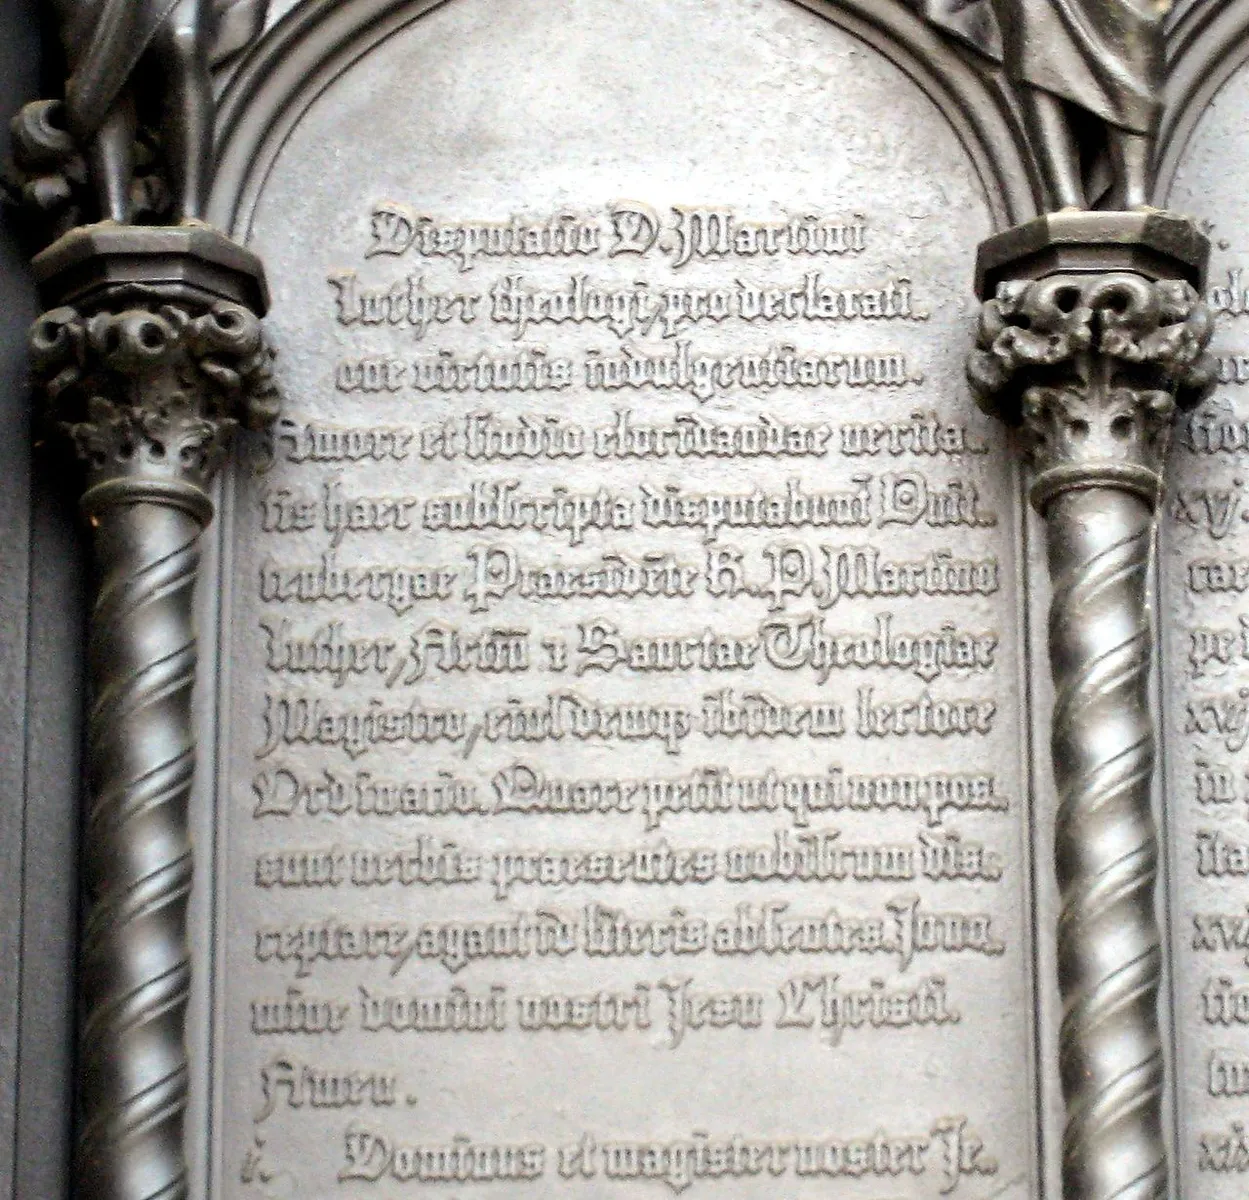 Disputatio D. Martini
Luther theologi, pro declarati-
one virtutis indulgentiarum.
Amore et studio elucidandae verita-
tis haec subscripta disputabunt Vuit-
tenbergae Praesidēte R. P. Martino
Luther, Artiū τ Sanctae Theologiae
Magistro, eiusdemq; ibidem lectore
Ordinario. Quare petit ut qui non pos-
sunt verbis praesentes nobiscum dis-
ceptare, agant id literis absentes. In no-
mine domini nostri Jesu Christi.
Amen.
i. Dominus et magister noster Je-